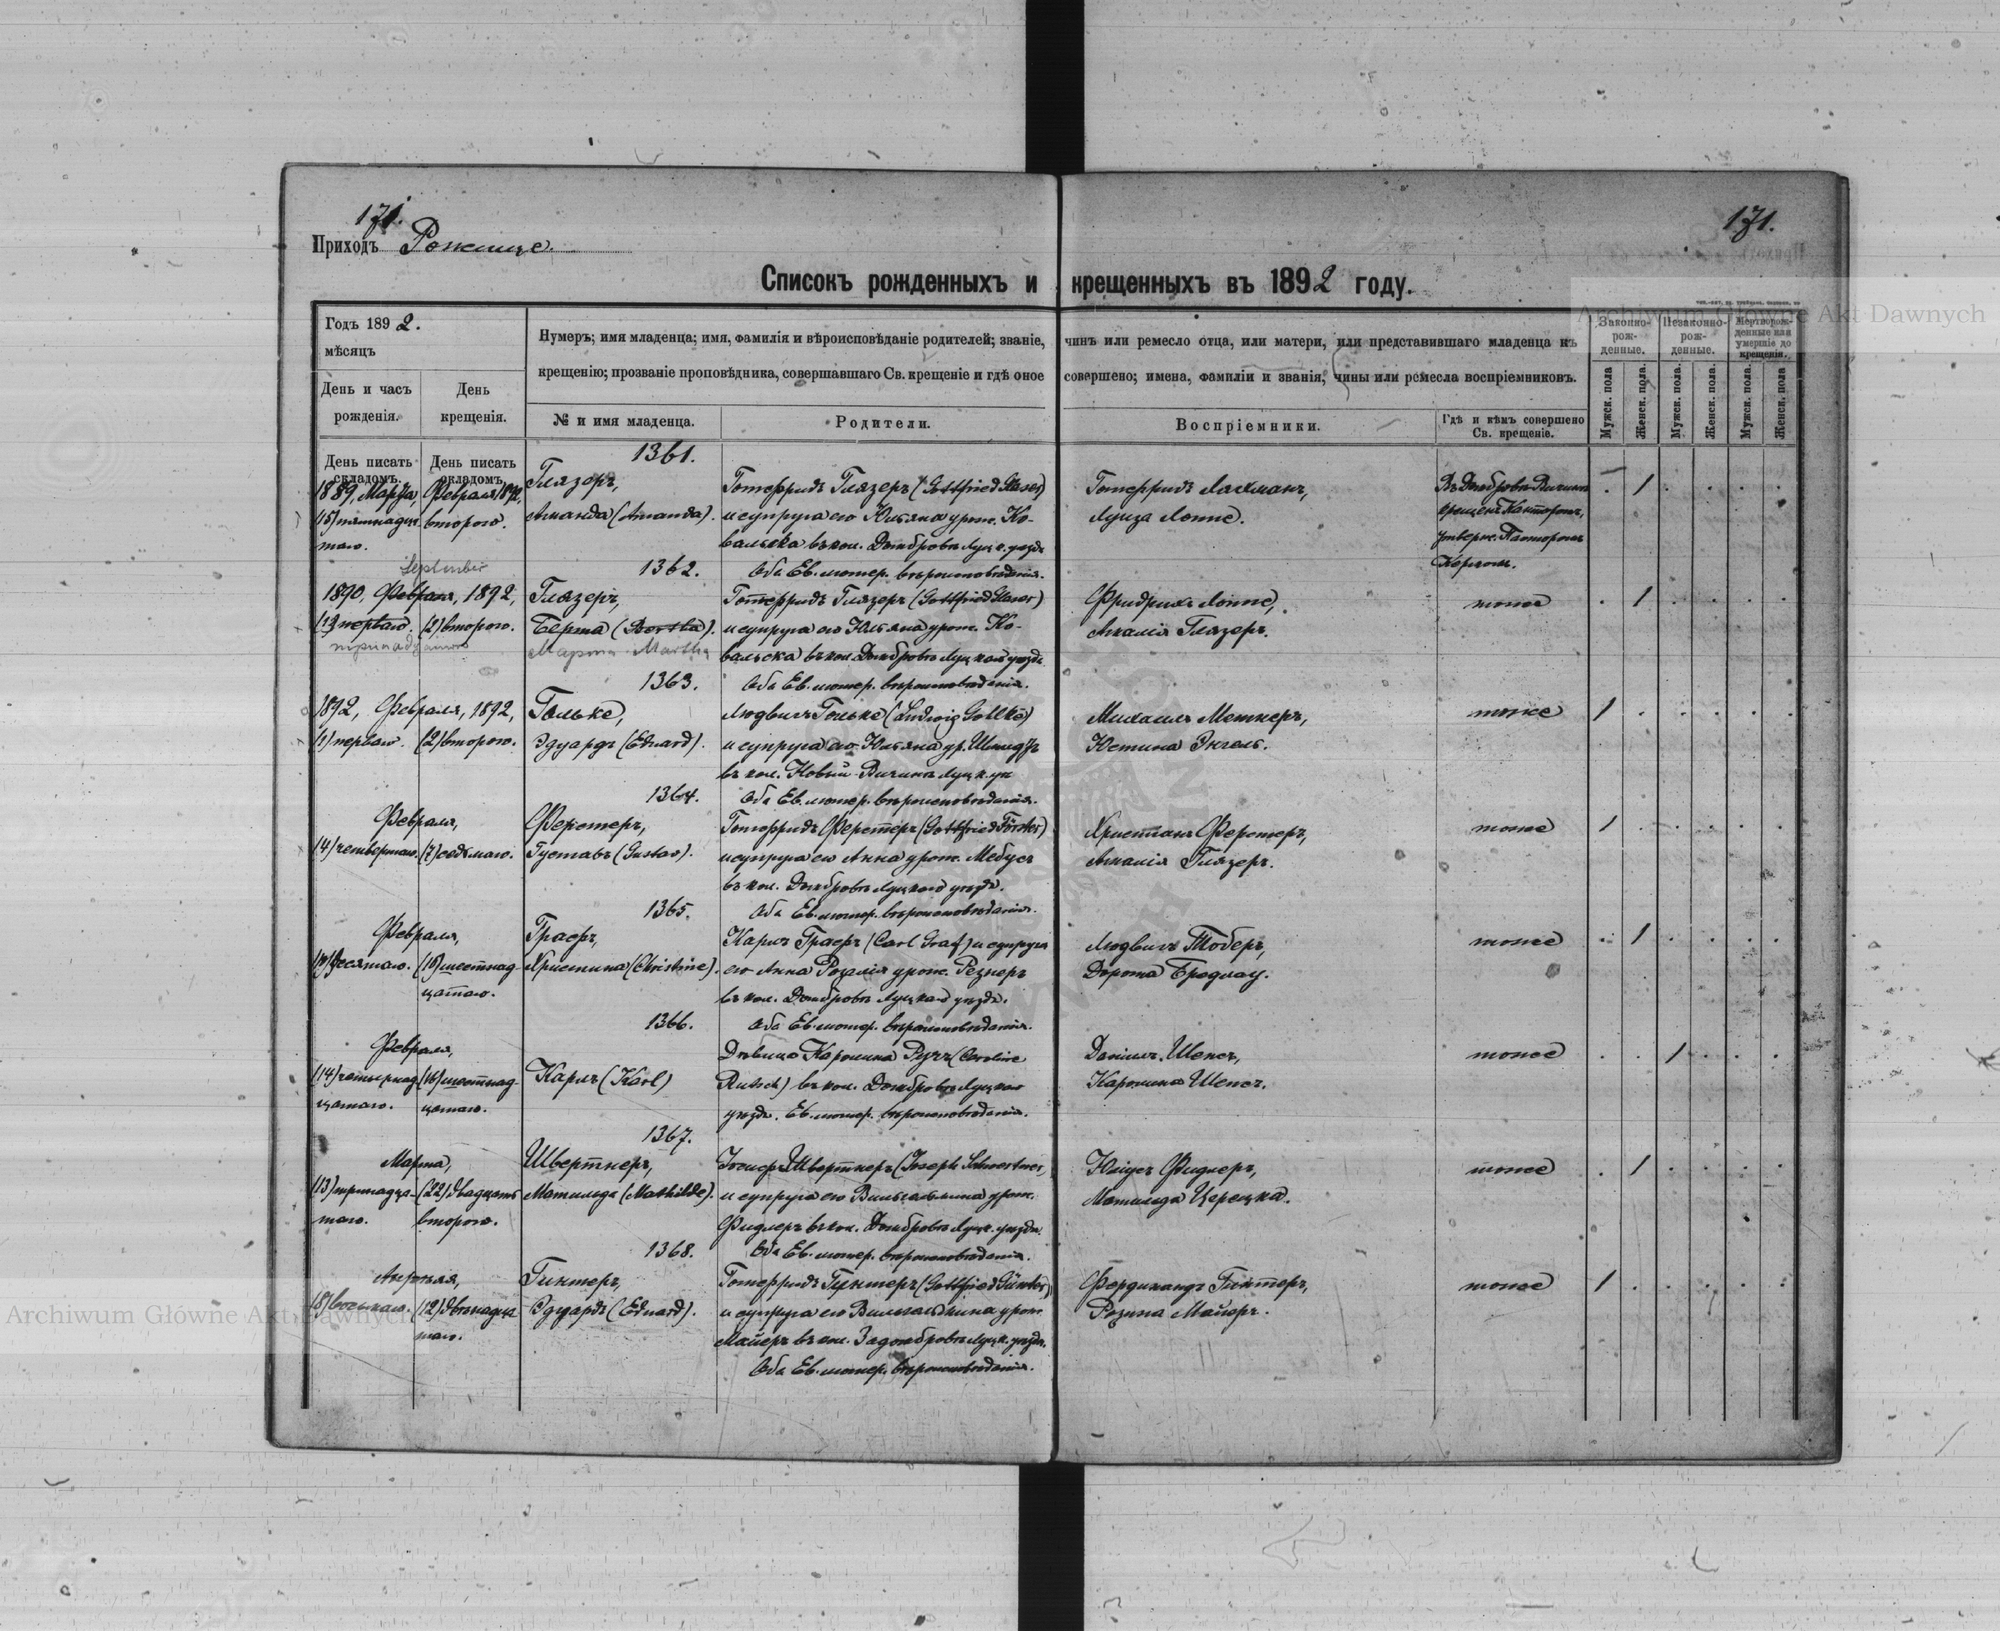 171.
171.
Приходъ Рожище.
Списокъ рожденныхъ и крещенныхъ въ 1892 году.
Годъ 1892.
мѣсяцъ
День и часъ рожденія.
День крещенія.
Нумеръ; имя младенца; имя, фамилія и вѣроисповѣданіе родителей; званіе, чинъ или ремесло отца, или матери, или представившаго младенца къ
крещенію; прозваніе проповѣдника, совершавшаго Св. крещеніе и гдѣ оное совершено; имена, фамиліи и званія, чины или ремесла воспріемниковъ.
№ и имя младенца.
Родители.
Воспріемники.
Гдѣ и кѣмъ совершено Св. крещеніе.
Законно-рож-денные.
Незаконно-рож-денные.
Мертворож-денные или умершіе до крещенія.
Мужск. пола
Женск. пола.
Мужск. пола.
Женск. пола.
Мужск. пола.
Женск. пола
День писать складомъ.
День писать складомъ.
1361.
1889, Марта, Февраля 1892,
(15) пятнадца-
таго.
второго.
Глязеръ,
Аманда (Amanda).
Готфридъ Глязеръ (Gottfried Glaser)
и супруга его Юльяна урож. Ко-
вальска въ кол. Домбровѣ Луцк. уѣзда
Оба Ев. лютер. вѣроисповѣданія.
Готфридъ Лахманъ,
Луиза Лоппе.
Въ Домбровѣ
крещенъ Канторомъ,
утверж. Пасторомъ
1
1362.
September
1890, Февраля, 1892,
(1) перваго. (2) второго.
тринадцатого
Глязеръ,
Берта (Bertha).
Марта Martha
Готтфридъ Глязеръ (Gottfried Glaser)
и супруга его Юльяна урож. Ко-
вальска въ кол. Домбровѣ Луцкаго уѣзда
Оба Ев. лютер. вѣроисповѣданія.
Фридрихъ Лоппе,
Амалія Глязеръ.
тоже
1
1363.
1892, Февраля, 1892,
(1) перваго. (2) второго.
Гольке,
Эдуардъ (Eduard).
Людвигъ Гольке (Ludwig Gollke)
и супруга его Юльяна ур. Шмидтъ
въ кол. Новый Луцк. уѣ
Оба Ев. лютер. вѣроисповѣданія.
Михаилъ Метнеръ,
Юстина Энгель.
тоже
1
1364.
Февраля,
(4) четвертаго. (7) седьмаго.
Ферстеръ,
Густавъ (Gustav).
Готфридъ Ферстеръ (Gottfried Förster)
и супруга его Анна урож. Мебусъ
въ кол. Домбровѣ Луцкаго уѣзда.
Оба Ев. лютер. вѣроисповѣданія.
Христіанъ Ферстеръ,
Амалія Глязеръ.
тоже
1
1365.
Февраля,
(10) десятаго. (16) шестнад-
цатаго.
Графъ,
Христина (Christine).
Карлъ Графъ (Carl Graf) и супруга
его Анна Розалія урож. Резнеръ
въ кол. Домбровѣ Луцкаго уѣзда.
Оба Ев. лютер. вѣроисповѣданія.
Людвигъ Тоберъ,
Дорота Бредлау.
тоже
1
1366.
Февраля,
(14) четырнад- (16) шестнад-
цатаго. цатаго.
Карлъ (Karl)
Дѣвица Каролина (Caroline
) въ кол. Домбровѣ Луцкаго
уѣзда. Ев. лютер. вѣроисповѣданія.
Даніилъ Шепсъ,
Каролина Шепсъ.
тоже
1
1367.
Марта,
(13) тринадца- (22) двадцать
таго. второго.
Швертнеръ,
Матильда (Mathilde).
Іосифъ Швертнеръ (Joseph Schwertner)
и супруга его Вильгельмина урож.
Фидлеръ въ кол. Домбровѣ Луцк. уѣзда.
Оба Ев. лютер. вѣроисповѣданія.
Юліусъ Фидлеръ,
Матильда Церецка.
тоже
1
1368.
Апрѣля,
(8) восьмаго. (12) двѣнадца-
таго.
Гинтеръ,
Эдуардъ (Eduard).
Готфридъ Гинтеръ (Gottfried Günter)
и супруга его Вильгельмина урож.
Майеръ въ кол. Луцк. уѣзда.
Оба Ев. лютер. вѣроисповѣданія.
Фердинандъ Гинтеръ,
Розина Майеръ.
тоже
1
Archiwum Główne Akt Dawnych
Archiwum Główne Akt Dawnych